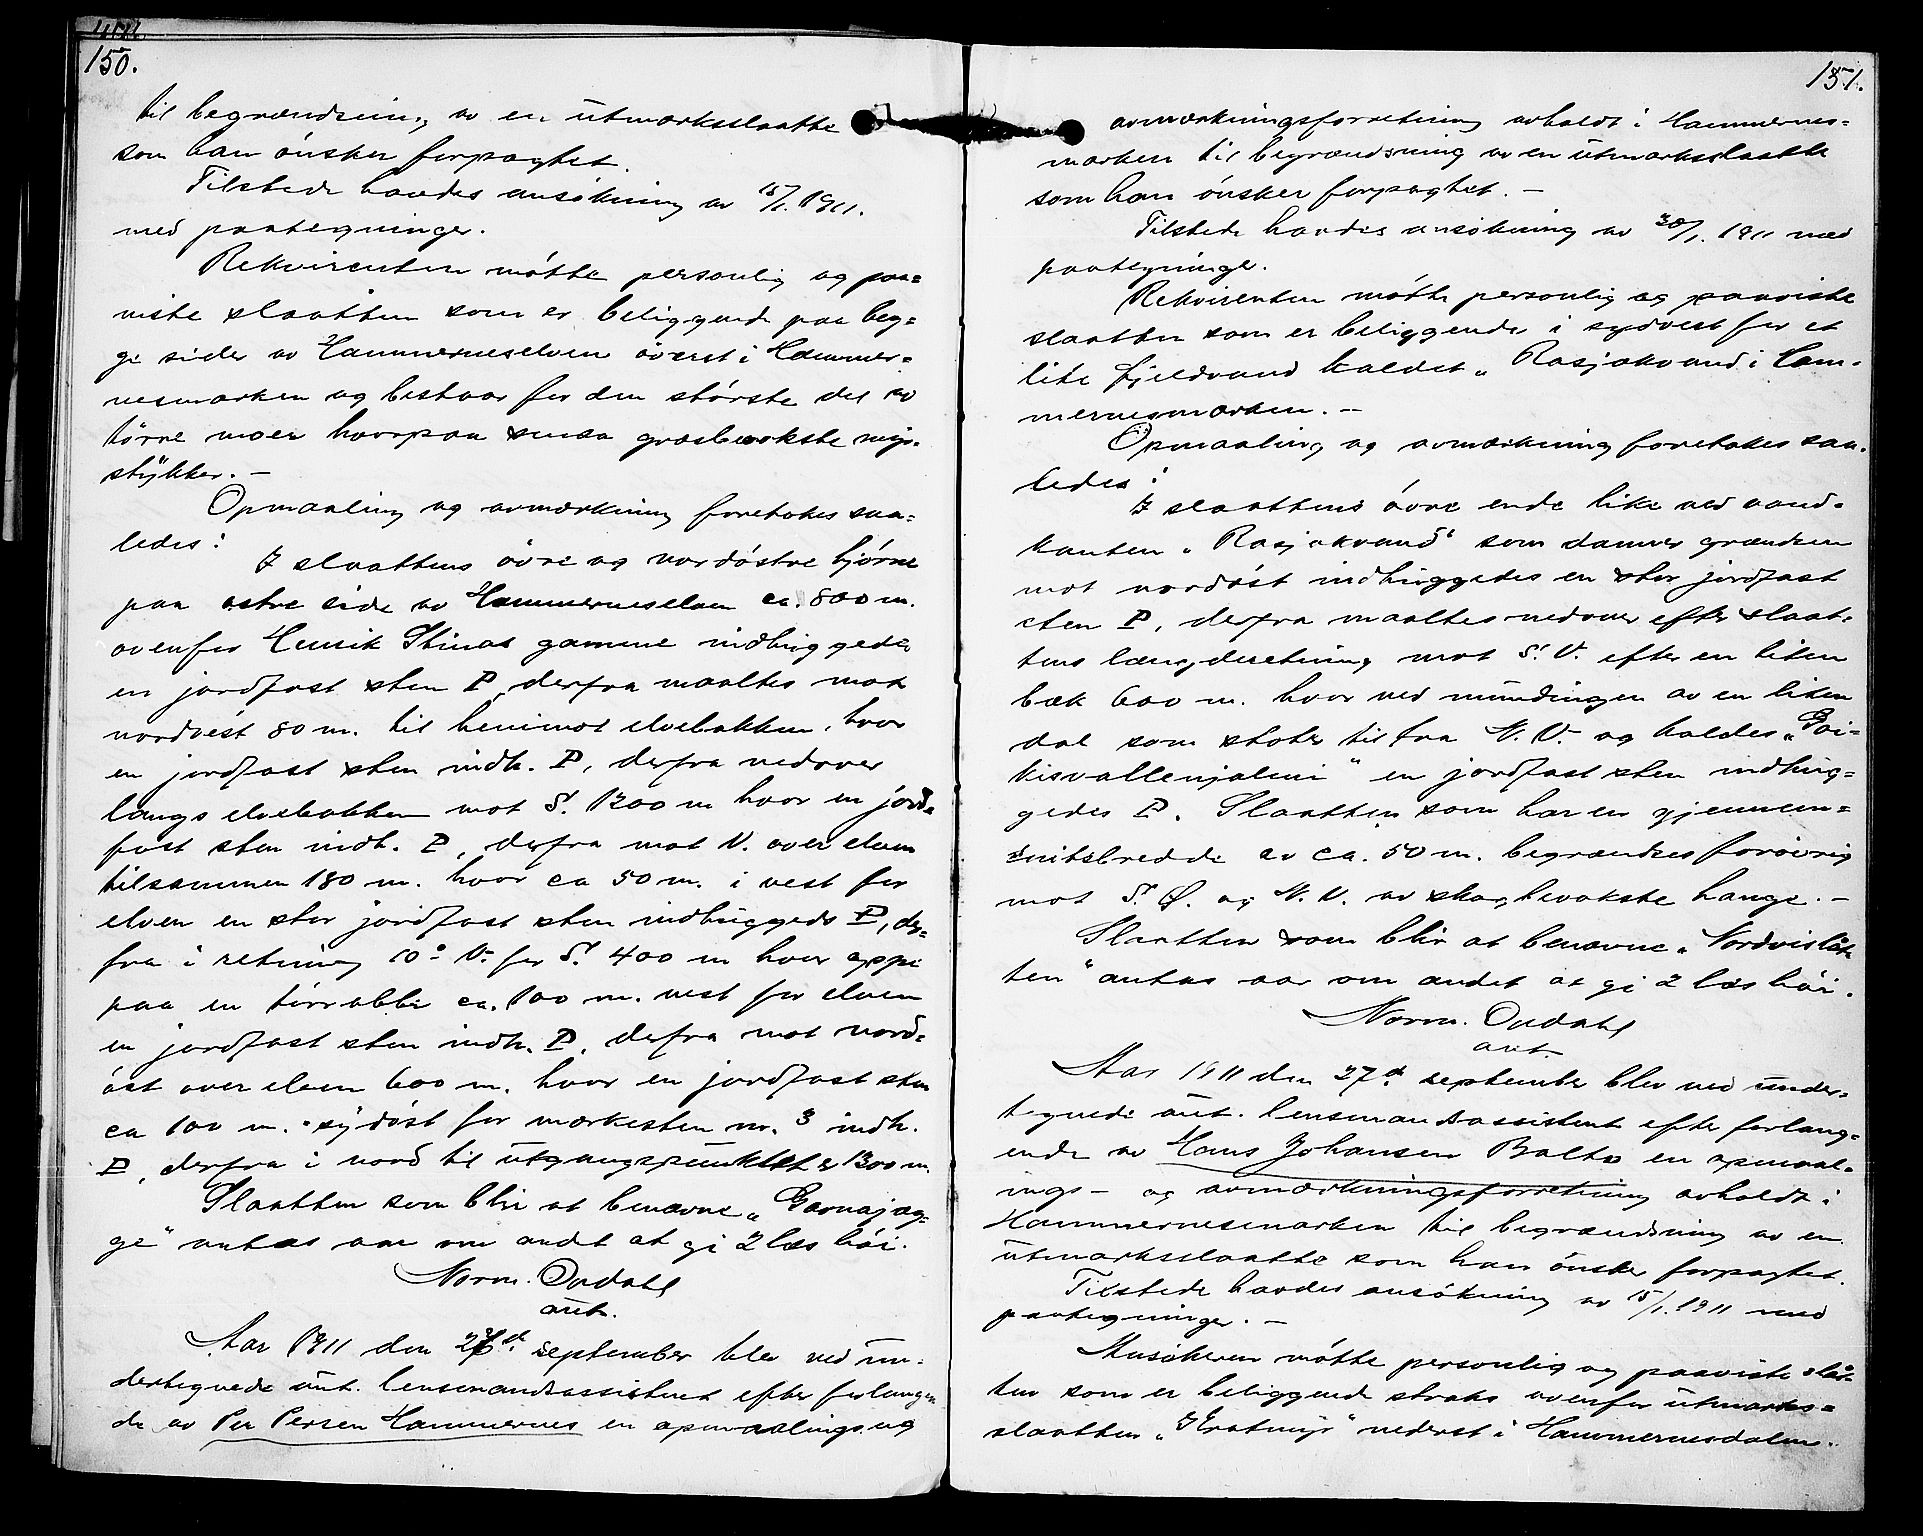 150.
til begrændsning av en utmarksslaatte
som han ønsker forpagtet.
Tilstede havdes ansøkning av 15/1. 1911.
med paategninger.
Rekvirenten møtte personlig og paa=
viste slaatten som er beliggende paa beg=
ge sider av Hammerneselven øverst i Hammer=
nesmarken og bestaar for den største del av
tørre moer hvorpaa smaa græsbevokste myr-
stykker. –
Opmaaling og avmærkning foretokes saa=
ledes:
I slaattens øvre og nordøstre hjørne
paa østre side av Hammerneselven ca. 800 m.
ovenfor Henrik Stinas gamme indhuggedes
en jordfast sten P, derfra maaltes mot
nordvest 80 m. til henimot elvebakken, hvor
en jordfast sten indh. P, derfra nedover
langs elvebakken mot S. 1300 m hvor en jord=
fast sten indh. P, derfra mot V. over elven
tilsammen 180 m. hvor ca 50 m. i vest for
elven en stor jordfast sten indhuggeds P, der=
fra i retning 10° V. for S. 400 m hvor oppe
paa en tørrabbe ca. 100 m. vest for elven
en jordfast sten indh. P, derfra mot nord=
øst over elven 600 m. hvor en jordfast sten
ca 100 m. sydøst for merkesten nr. 3 indh.
P, derfra i nord til utgangspunktet er 1300 m.
Slaatten som blir at benævne „Gavnajag=
ge" antas aar om andet at gi 2 læs høi.
Norm. Opdahl
aut.
Aar 1911 den 26d. september blev ved un=
dertegnede aut. lensmandsassistent efter forlangen
de av Per Persen Hammernes en opmaalings og
151.
avmerkningsforretning avholdt i Hammernes=
marken til begrændsning av en utmarksslaatte
som han ønsker forpagtet. –
Tilstede havdes ansøkning av 30/1. 1911 med
paategninge.
Rekvirenten møtte personlig og paaviste
slaatten som er beliggende i sydvest for et
lite fjeldvand kaldet „Rasjokvand i Ham-
mernesmarken. –
Opmaaling og avmerkning foretokes saa-
ledes:
I slaattens øvre ende like ved vand-
kanten „Rasjokvand" som danner grændsen
mot nordøst indhuggedes en stor jordfast
sten P, derfra maaltes nedover efter slaat-
tens længderetning mot S. V. efter en liten
bæk 600 m. hvor ved mundingen av en liten
dal som støter til fra N. V. og kaldes „Goi-
kisvallenjalmi" en jordfast sten indhug=
gedes P. Slaatten som har en gjennem=
snitsbredde av ca. 50 m. begrændses forøvrig
mot S. Ø. og N. V. av skogbevokste hauge. –
Slaatten som blir at benævne „Nordvislåt
ten" antas aar om andet at gi 2 læs høi.
Norm. Opdahl
aut.
Aar 1911 den 27d. september blev ved under-
tegnede aut. lensmandsassistent efter forlang=
ende av Hans Johansen Balto en opmaal=
ings- og avmerkningsforretning avholdt i
Hammernesmarken til begrændsning av en
utmarksslaatte som han ønsker forpagtet.
Tilstede havdes ansøkning av 15/1. 1911 med
paategninger. –
Ansøkeren møtte personlig og paaviste slåt-
ten som er beliggende straks ovenfor utmarks=
slaatten „Kratmyr" nederst i Hammernesdalen.